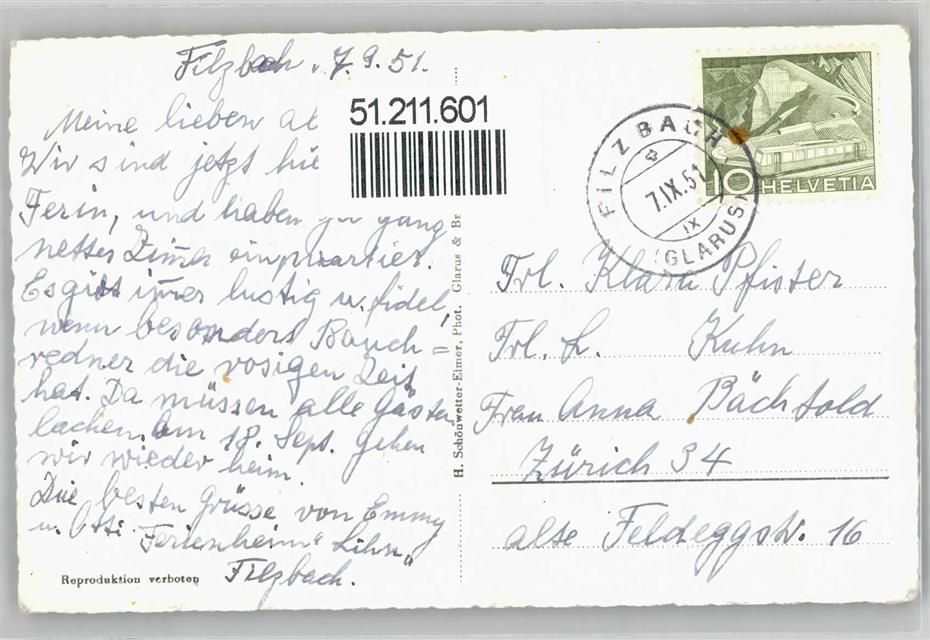 Filzbach, 7.9.51.
Meine lieben
Wir sind jetzt
Ferin, und haben gar ganz
nettes Zimer einquartiert.
Es gibt imer lustig u. fidel,
wenn besonders Bauch=
redner die vosigen Zeit
hat. Da müssen alle Gästen
lachen. Am 18. Sept. gehen
wir wieder heim.
Die besten Grüsse von Emmy
u. Otti Ferienheim "Lihn"
Filzbach.
Reproduktion verboten
H. Schönwetter-Elmer, Phot. Glarus & Br
51.211.601
FILZBACH
7.IX.51
IX
(GLARUS)
10 HELVETIA
Frl. Klara Pfister
Frl. L. Kuhn
Frau Anna Bächtold
Zürich 34
alte Feldeggstr. 16